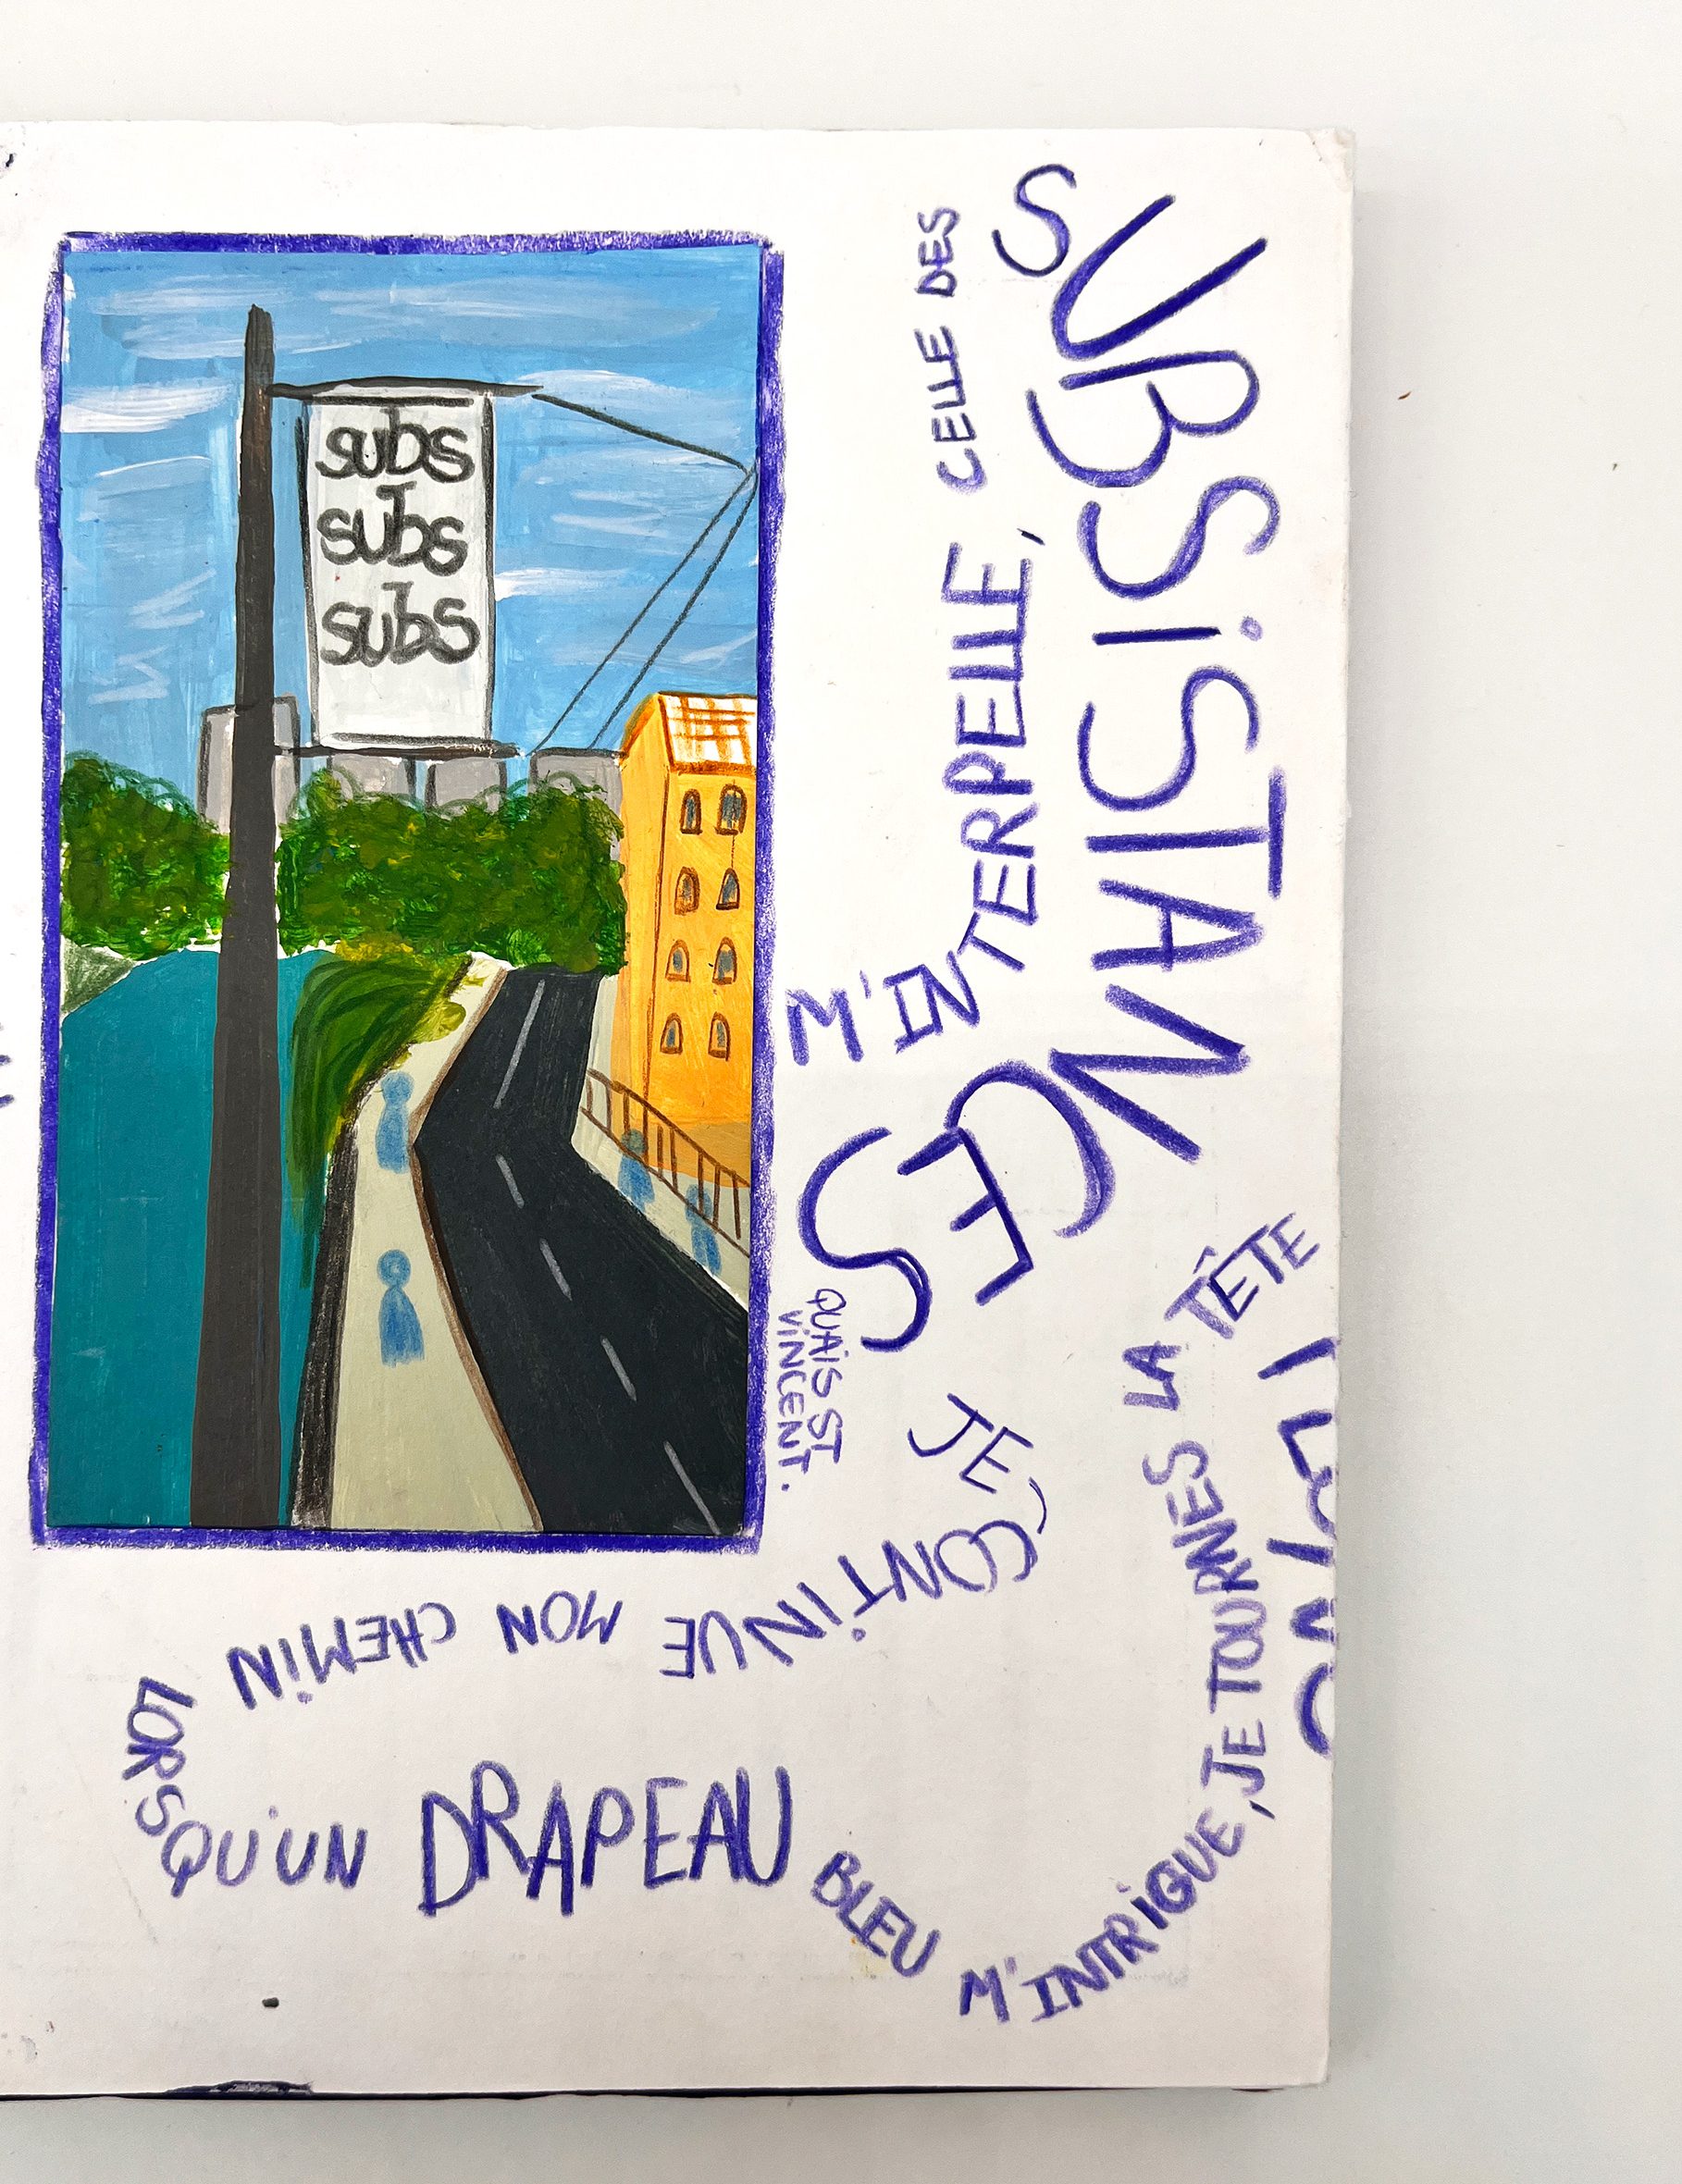 subs
subs
subs
M'INTERPELLE, CELLE DES
SUBSISTANCES
QUAIS ST
VINCENT.
JE CONTINUE MON CHEMIN
LORSQU'UN DRAPEAU BLEU M'INTRIGUE, JE TOURNES LA TÊTE